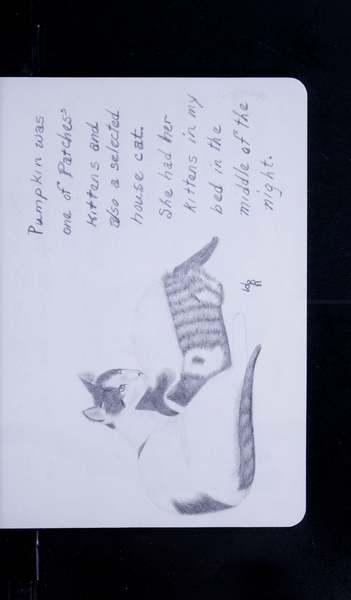 Pumpkin was
one of Patches'
Kittens and
also a selected
house cat.
She had her
Kittens in my
bed in the
middle of the
night.